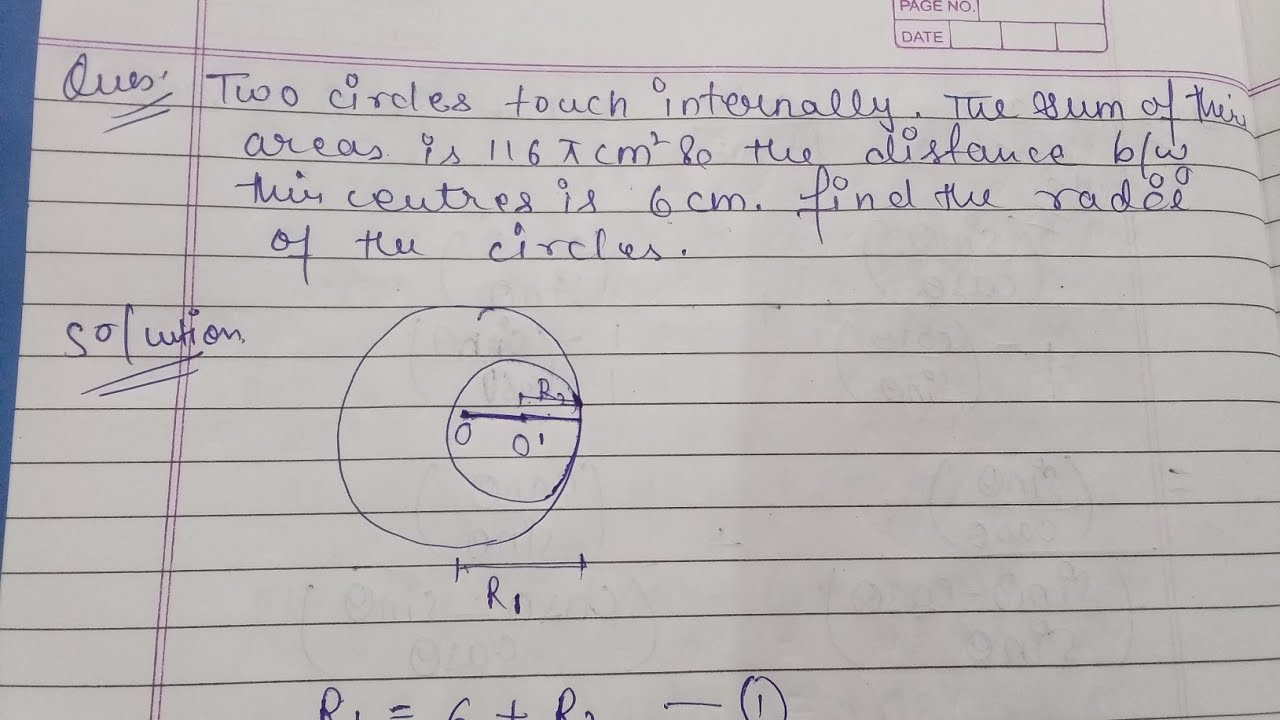 PAGE NO.
DATE
Ques: Two circles touch internally. The sum of their
areas is 116 π cm² & the distance b/w
their centres is 6 cm. find the radii
of the circles.
Solution
R₂
O O'
R₁
R₁ = 6 + R₂ — ①